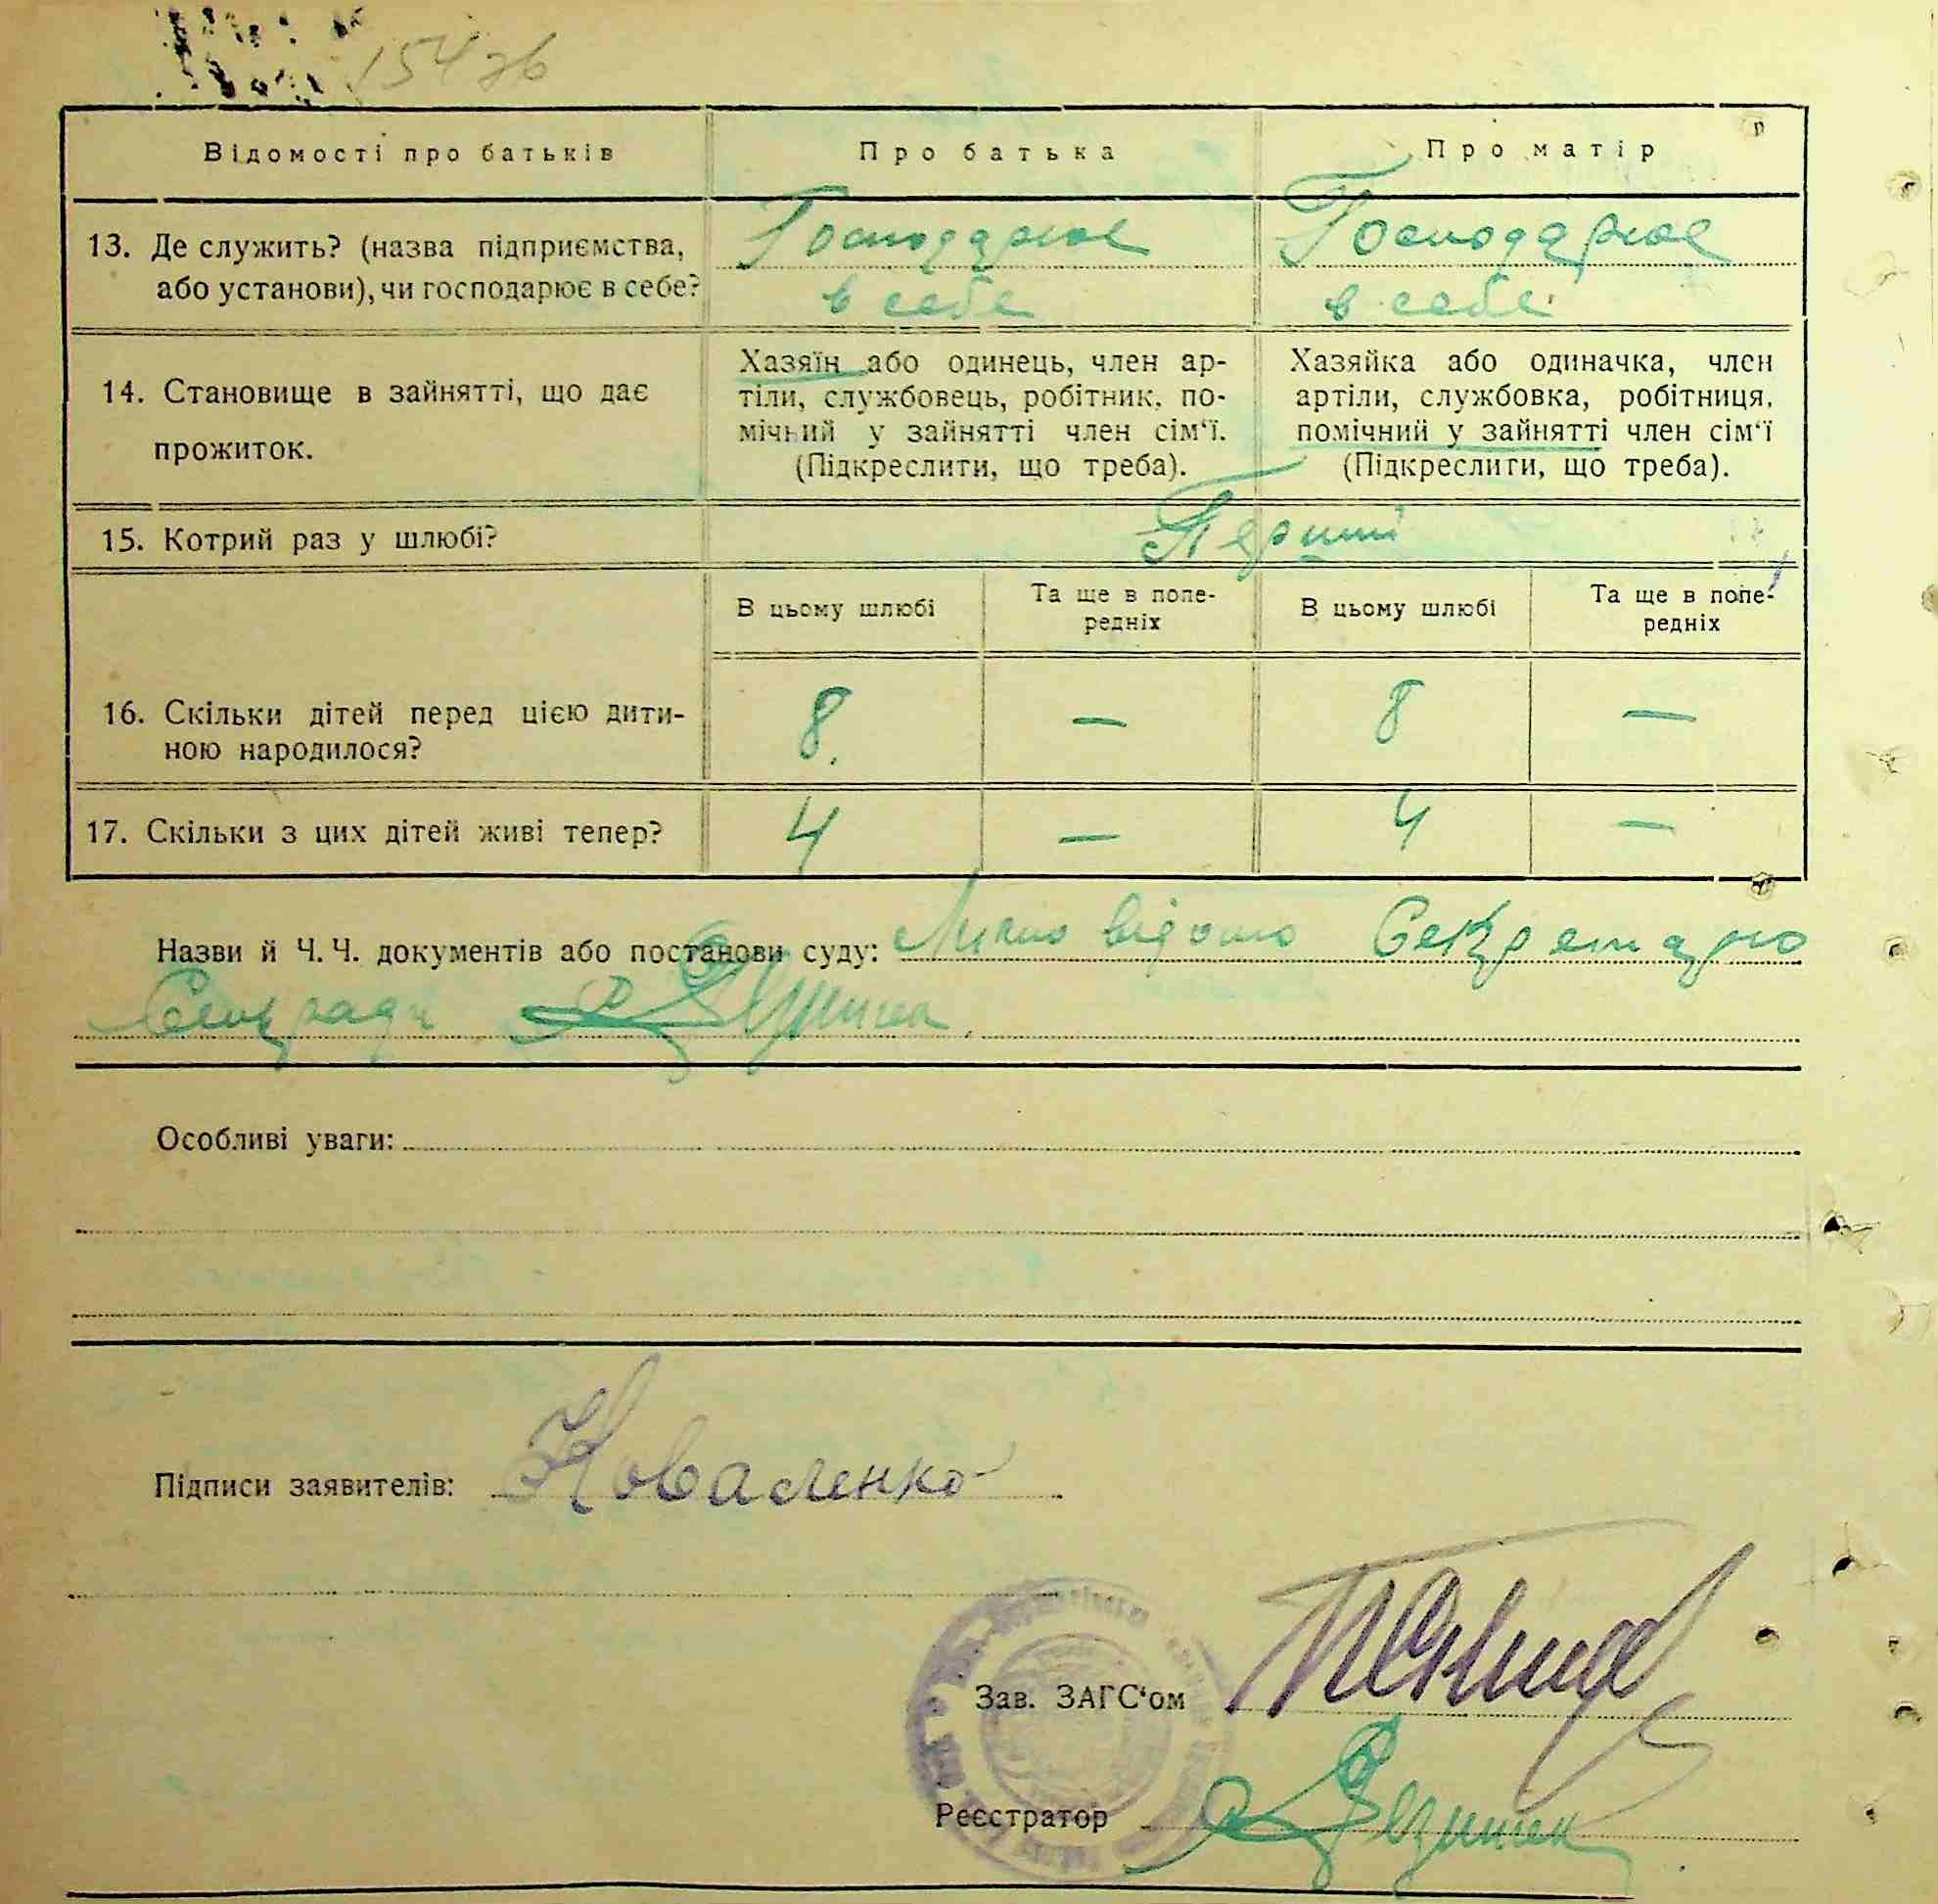 154 зв
Відомості про батьків
Про батька
Про матір
13. Де служить? (назва підприємства,
або установи), чи господарює в себе?
Господарює
в себе
Господарює
в себе
14. Становище в зайнятті, що дає
прожиток.
Хазяїн або одинець, член ар-
тіли, службовець, робітник, по-
мічний у зайнятті член сім‘ї.
(Підкреслити, що треба).
Хазяйка або одиначка, член
артіли, службовка, робітниця,
помічний у зайнятті член сім‘ї
(Підкреслити, що треба).
15. Котрий раз у шлюбі?
Перший
В цьому шлюбі
Та ще в попе-
редніх
В цьому шлюбі
Та ще в попе-
редніх
16. Скільки дітей перед цією дити-
ною народилося?
8. — 8 —
17. Скільки з цих дітей живі тепер? 4 — 4 —
Назви й Ч. Ч. документів або постанови суду: Лично відомо Секретарю
Сельради
Особливі уваги:
Підписи заявителів: Коваленко
Зав. ЗАГС‘ом
Реєстратор